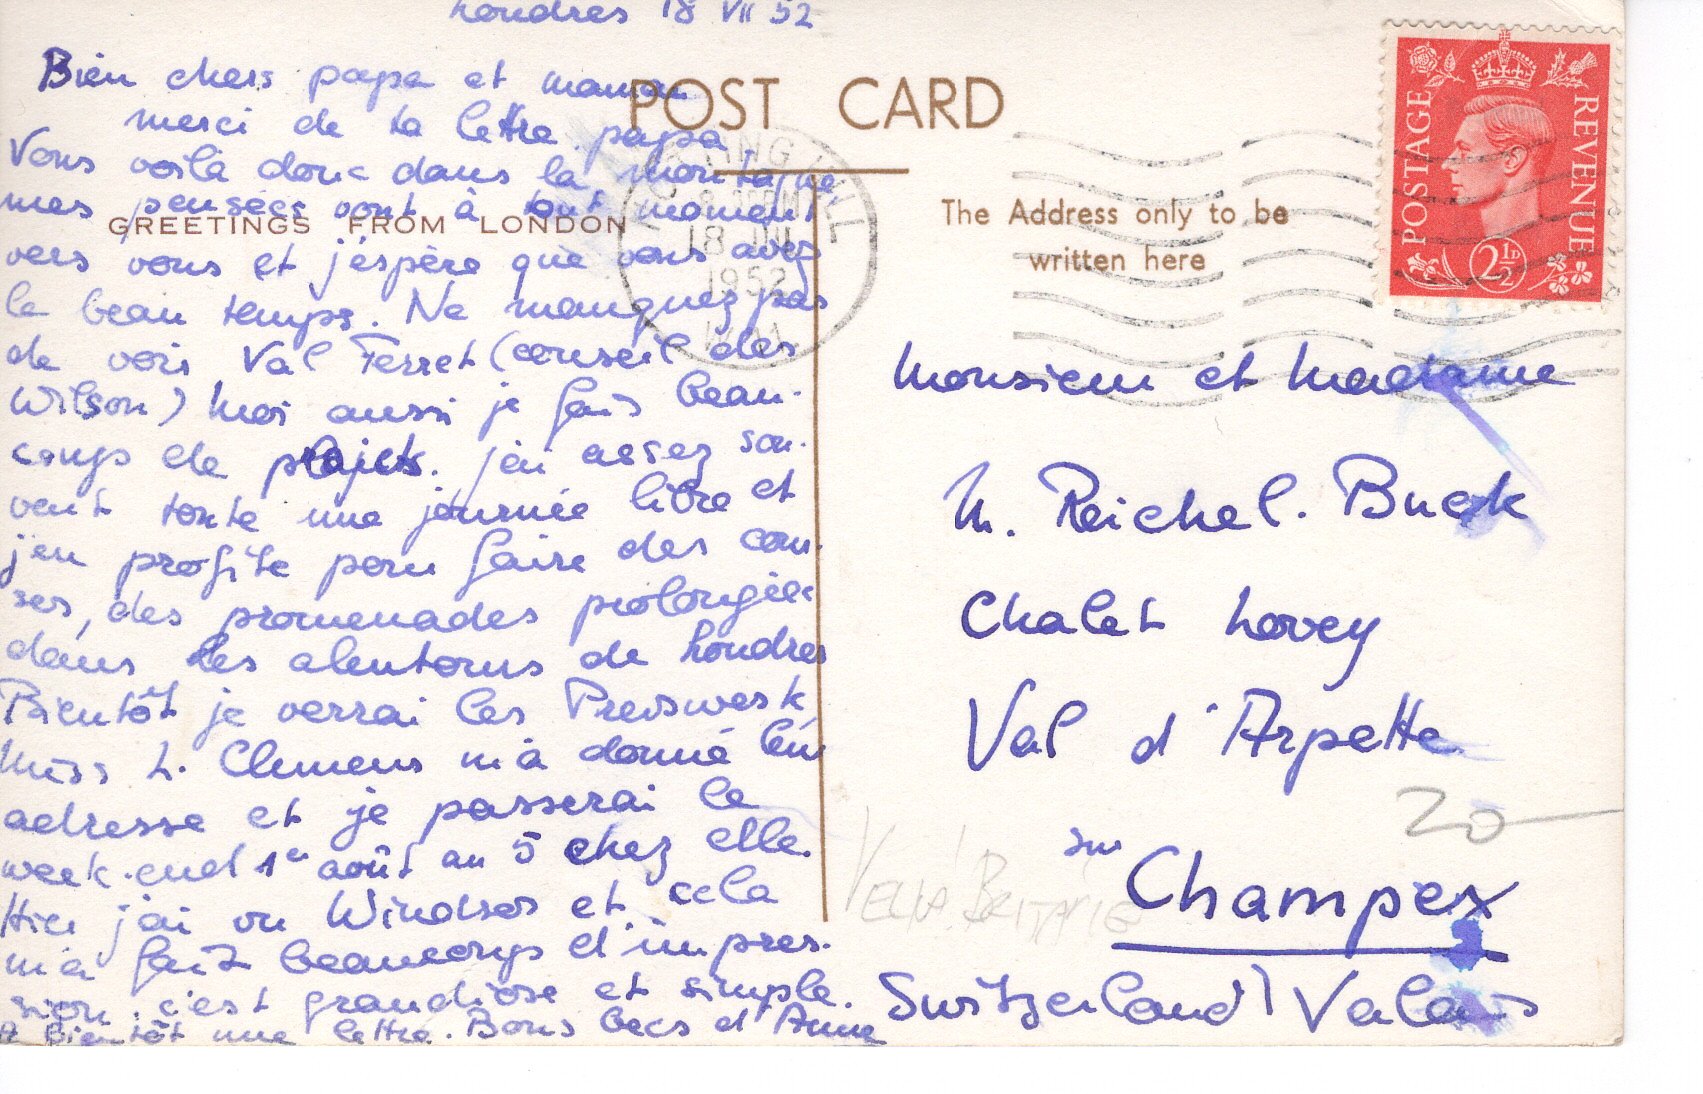 Londres 18 VII 52
Bien chers papa et maman
merci de ta lettre papa
Vous voilà donc dans la montagne
mes pensées vont à tout moment
vers vous et j'espère que vous avez
le beau temps. Ne manquez pas
de voir Val Ferret (conseil des
Wilson) Moi aussi je fais beau-
coups de projets. j'ai assez sou-
vent toute une journée libre et
j'en profite pour faire des cour-
ses, des promenades prolongées
dans les alentours de Londres
Bientôt je verrai les Preiswerk,
Miss L. Clemens m'a donné leur
adresse et je passerai le
week-end 1er août au 5 chez elle.
Hier j'ai vu Windsor et cela
m'a fait beaucoups d'impres-
sion. c'est grandiose et simple.
A bientôt une lettre. Bons becs d'Anne
POST CARD
GREETINGS FROM LONDON
The Address only to be
written here
18 JUL
1952
POSTAGE
REVENUE
2½D
Monsieur et Madame
M. Reichel. Buck
Chalet Lovey
Val d'Arpette
sur
Champex
Switzerland) Valais
20